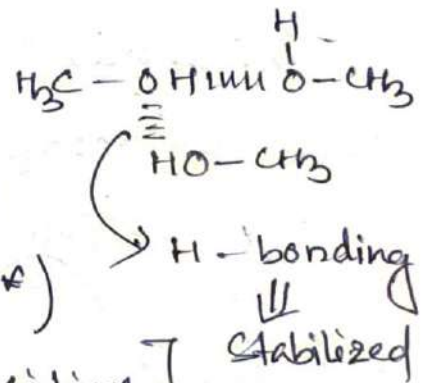 H
H₃C – O H ıııııı O – CH₃
HO – CH₃
*) H – bonding
⇓
Stabilized